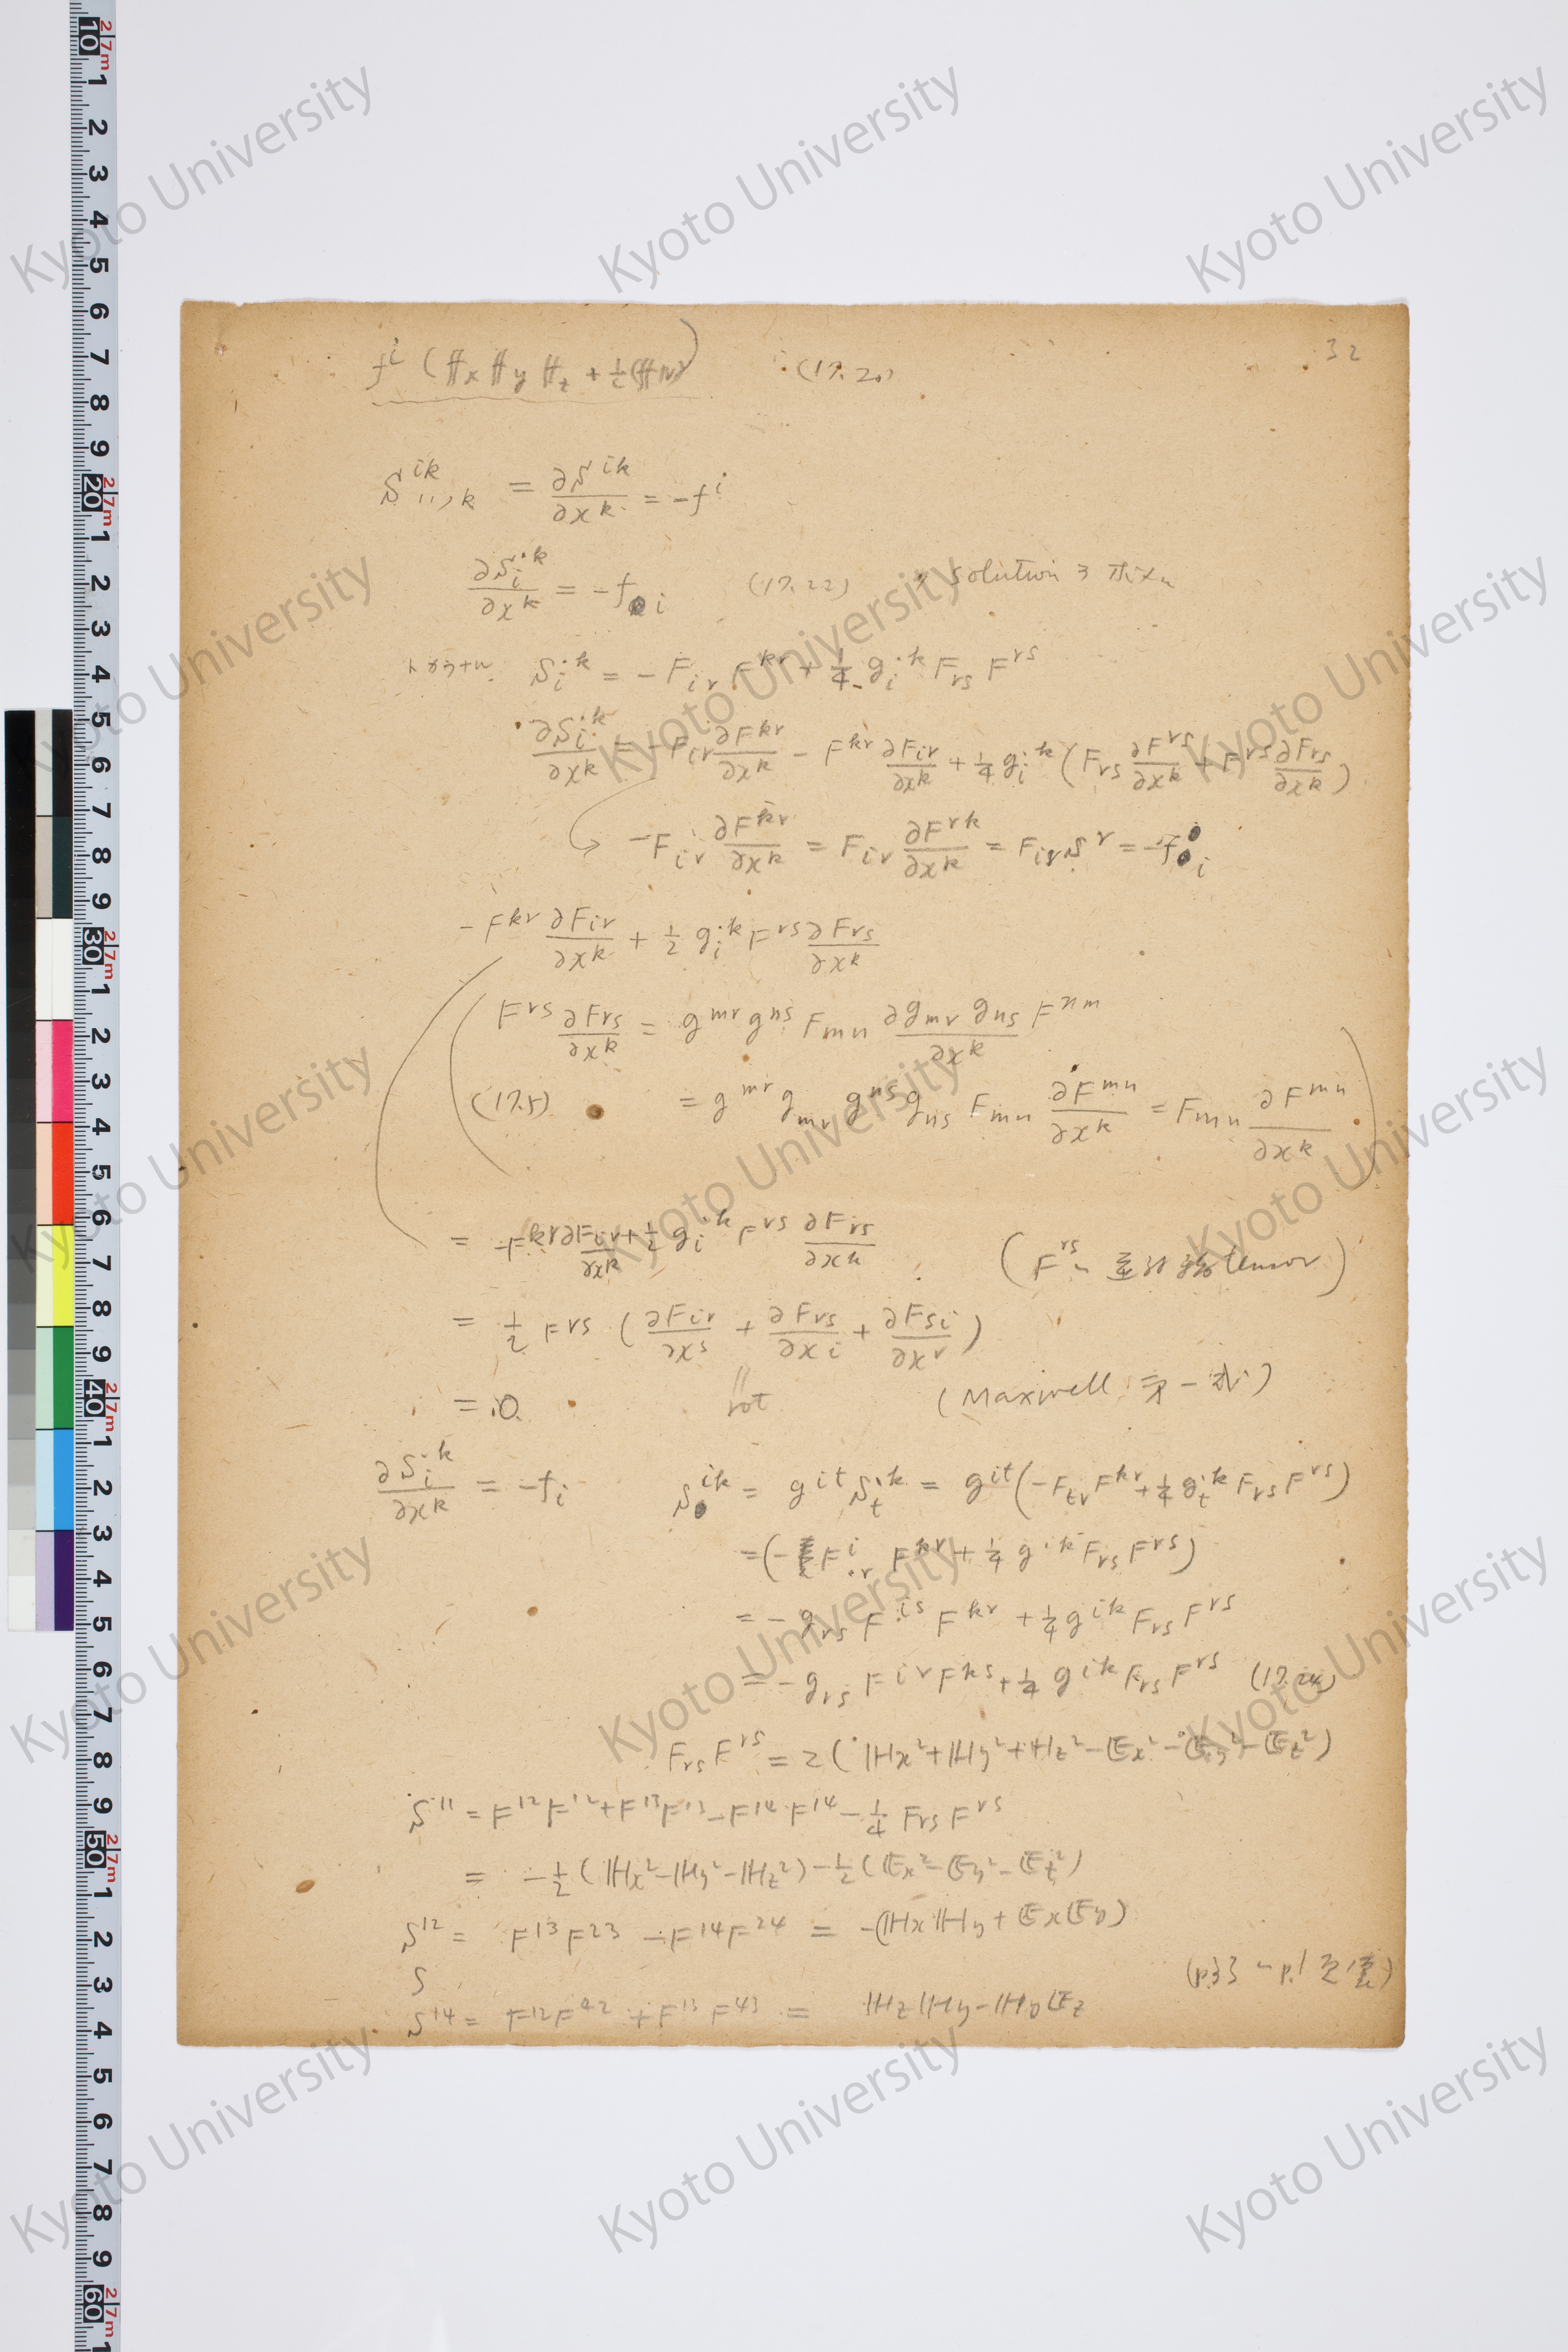 32
f^i (𝔣x 𝔣y 𝔣z + 1/c (𝔣 v)) (17.20)
S^{ik}_{..,k} = ∂S^{ik}/∂x^k = -f^i
∂S_i^{.k}/∂x^k = -f_i (17.22) solution
S_i^{.k} = -F_{ir} F^{kr} + 1/4 g_i^{.k} F_{rs} F^{rs}
∂S_i^{.k}/∂x^k = -F_{ir} ∂F^{kr}/∂x^k - F^{kr} ∂F_{ir}/∂x^k + 1/4 g_i^{.k} (F_{rs} ∂F^{rs}/∂x^k + F^{rs} ∂F_{rs}/∂x^k)
-F_{ir} ∂F^{kr}/∂x^k = F_{ir} ∂F^{rk}/∂x^k = F_{ir} s^r = -f_i
-F^{kr} ∂F_{ir}/∂x^k + 1/2 g_i^{.k} F^{rs} ∂F_{rs}/∂x^k
(F^{rs} ∂F_{rs}/∂x^k = g^{mr} g^{ns} F_{mn} ∂g_{mr} g_{ns} F^{nm}/∂x^k
(17.5) = g^{mr} g_{mr} g^{ns} g_{ns} F_{mn} ∂F^{mn}/∂x^k = F_{mn} ∂F^{mn}/∂x^k)
= -F^{kr} ∂F_{ir}/∂x^k + 1/2 g_i^{.k} F^{rs} ∂F_{rs}/∂x^k (F^{rs} tensor)
= 1/2 F^{rs} (∂F_{ir}/∂x^s + ∂F_{rs}/∂x^i + ∂F_{si}/∂x^r)
= 0. rot (Maxwell 第一式)
∂S_i^{.k}/∂x^k = -f_i S^{ik} = g^{it} S_t^{.k} = g^{it}(-F_{tr} F^{kr} + 1/4 g_t^{.k} F_{rs} F^{rs})
=(-F^i_{.r} F^{kr} + 1/4 g^{ik} F_{rs} F^{rs})
= -g_{rs} F^{is} F^{kr} + 1/4 g^{ik} F_{rs} F^{rs}
= -g_{rs} F^{ir} F^{ks} + 1/4 g^{ik} F_{rs} F^{rs} (17.24)
F_{rs} F^{rs} = 2(ℍx² + ℍy² + ℍz² - 𝔼x² - 𝔼y² - 𝔼z²)
S^{11} = F^{12}F^{12} + F^{13}F^{13} - F^{14}F^{14} - 1/4 F_{rs} F^{rs}
= -1/2 (ℍx² - ℍy² - ℍz²) - 1/2 (𝔼x² - 𝔼y² - 𝔼z²)
S^{12} = F^{13}F^{23} - F^{14}F^{24} = -(ℍxℍy + 𝔼x𝔼y)
S
S^{14} = F^{12}F^{42} + F^{13}F^{43} = ℍzℍy - ℍy𝔼z